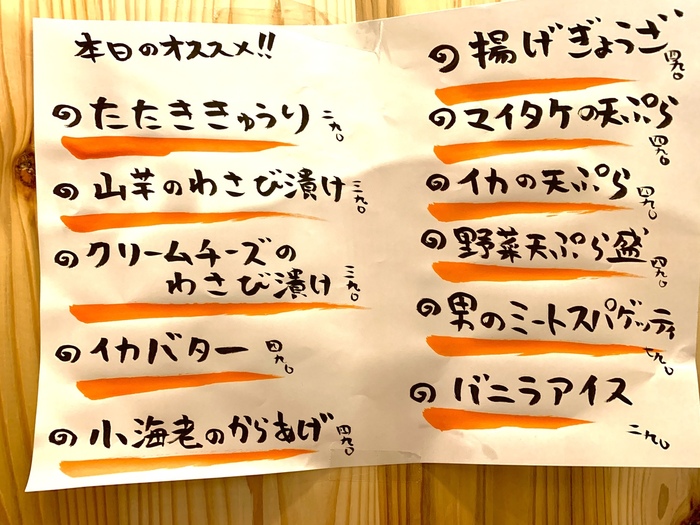 本日のオススメ!!
たたききゅうり 二九〇
山芋のわさび漬け 三九〇
クリームチーズの
わさび漬け 三九〇
イカバター 四九〇
小海老のからあげ 四九〇
揚げぎょうざ 四九〇
マイタケの天ぷら 四九〇
イカの天ぷら 四九〇
野菜天ぷら盛 四九〇
男のミートスパゲッティ 七九〇
バニラアイス 二九〇